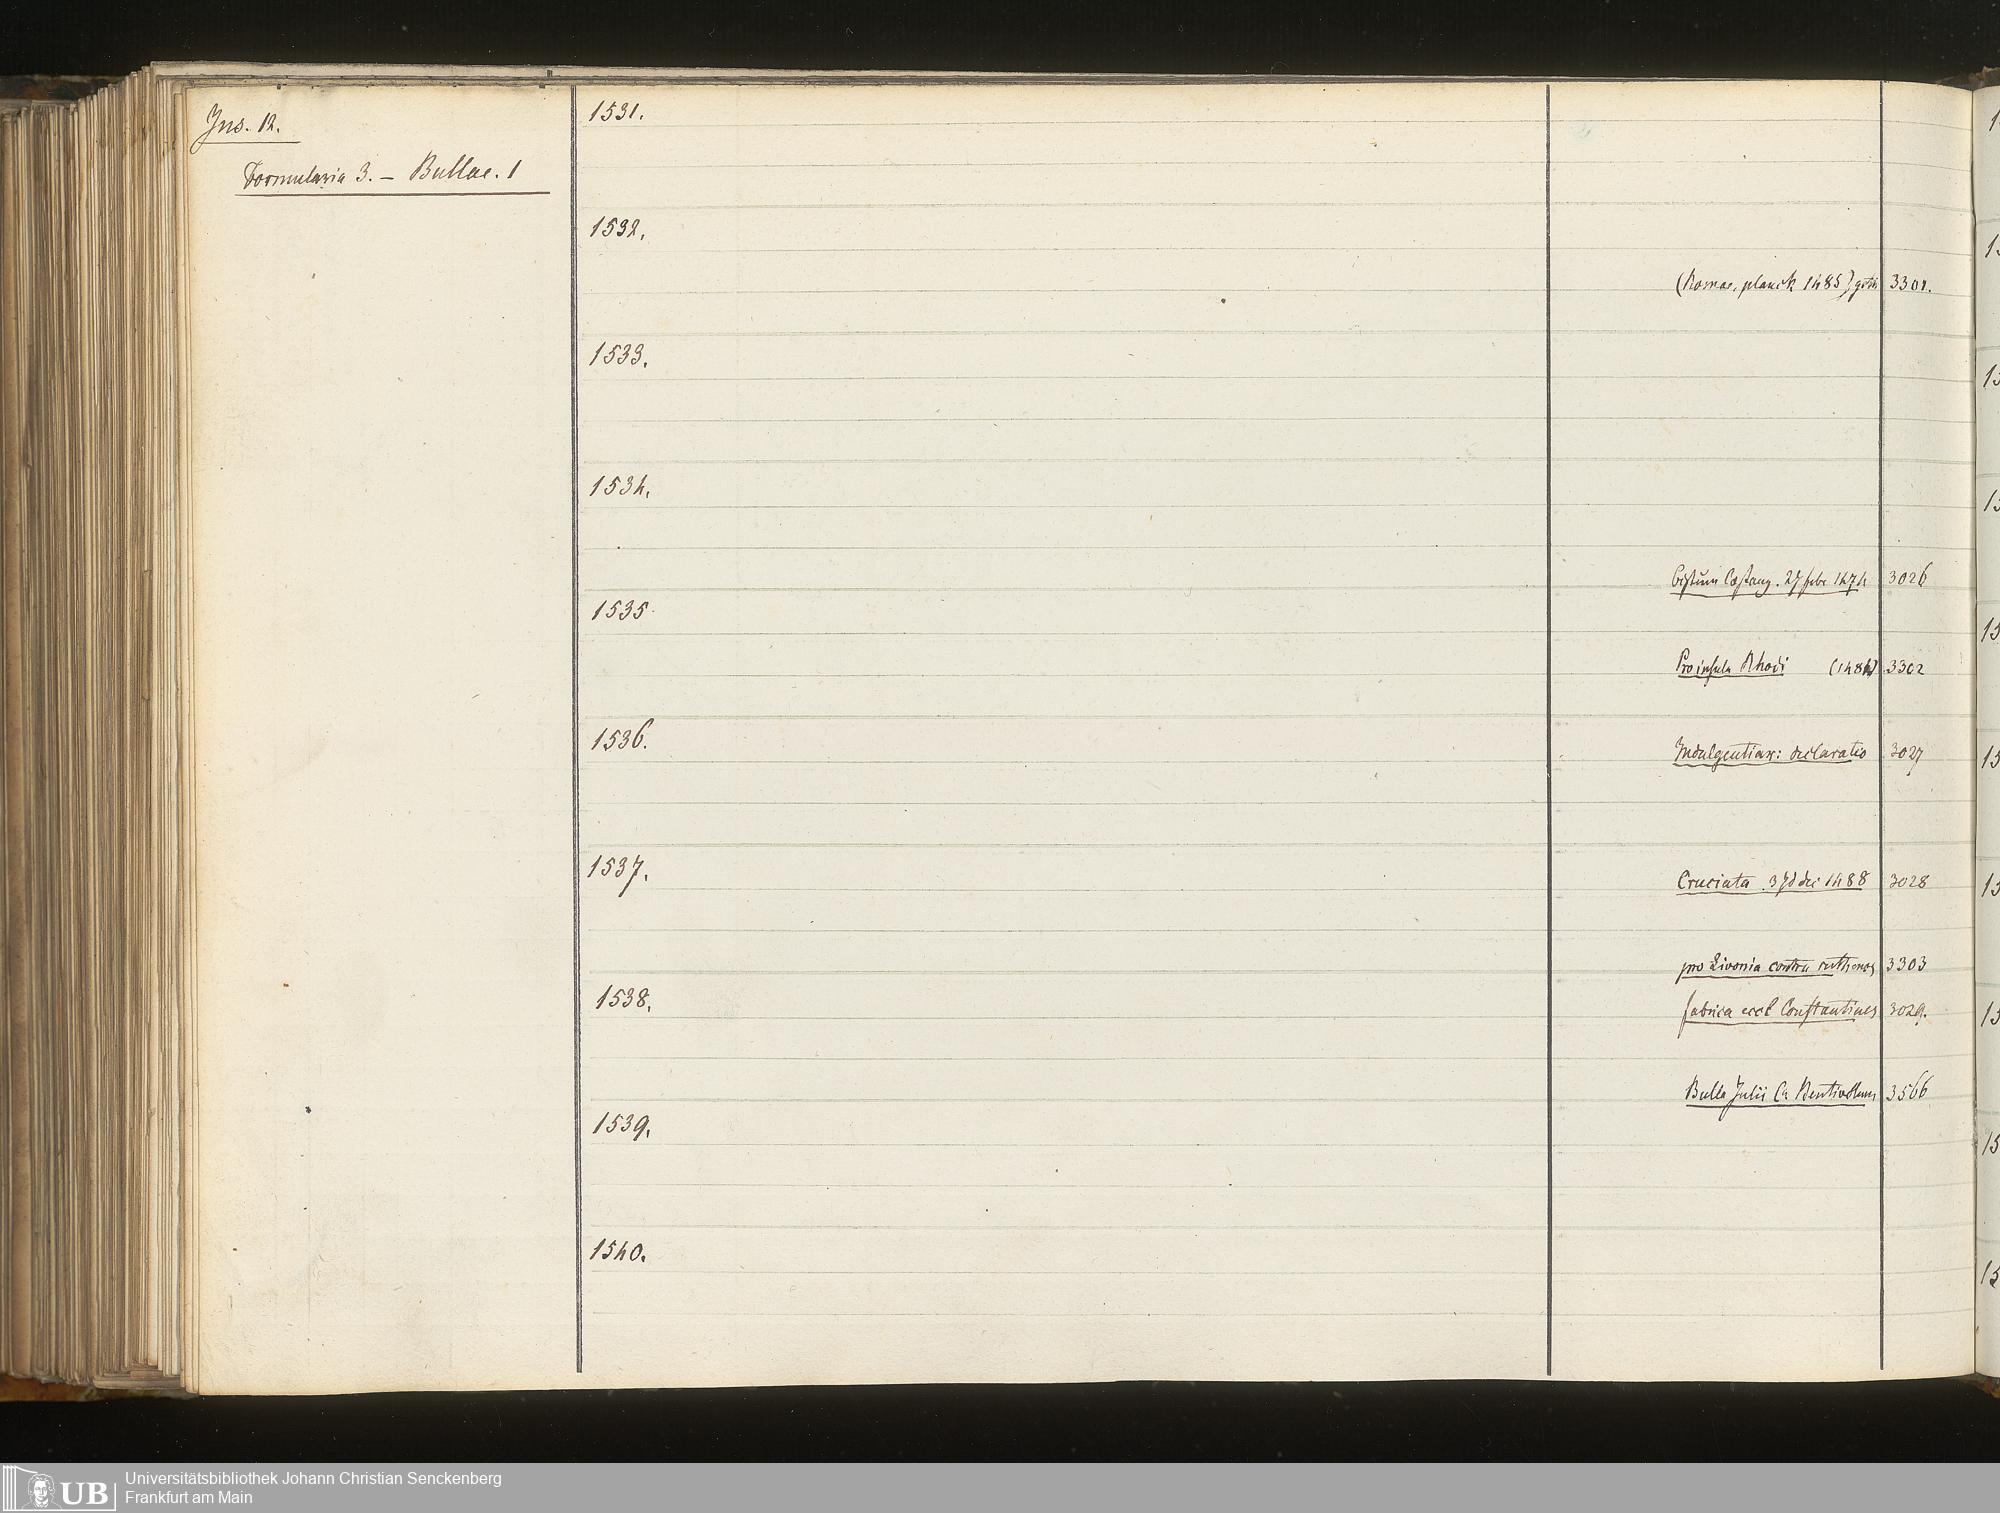 Jus. 12.
Formularia 3. – Bullae. 1
1531.
1532.
(Romae, planck 1485) 3301.
1533.
1534.
27 febr 1474 3026
1535
Pro insula Rhodi (1481) 3302
1536.
Indulgentiar: declaratio 3027
1537.
Cruciata 1488 3028
pro Livonia contra ruthenos 3303
1538.
fabrica eccl Constantiens 3029.
Bulla Julii Bentivolum 3566
1539.
1540.
UB
Universitätsbibliothek Johann Christian Senckenberg
Frankfurt am Main